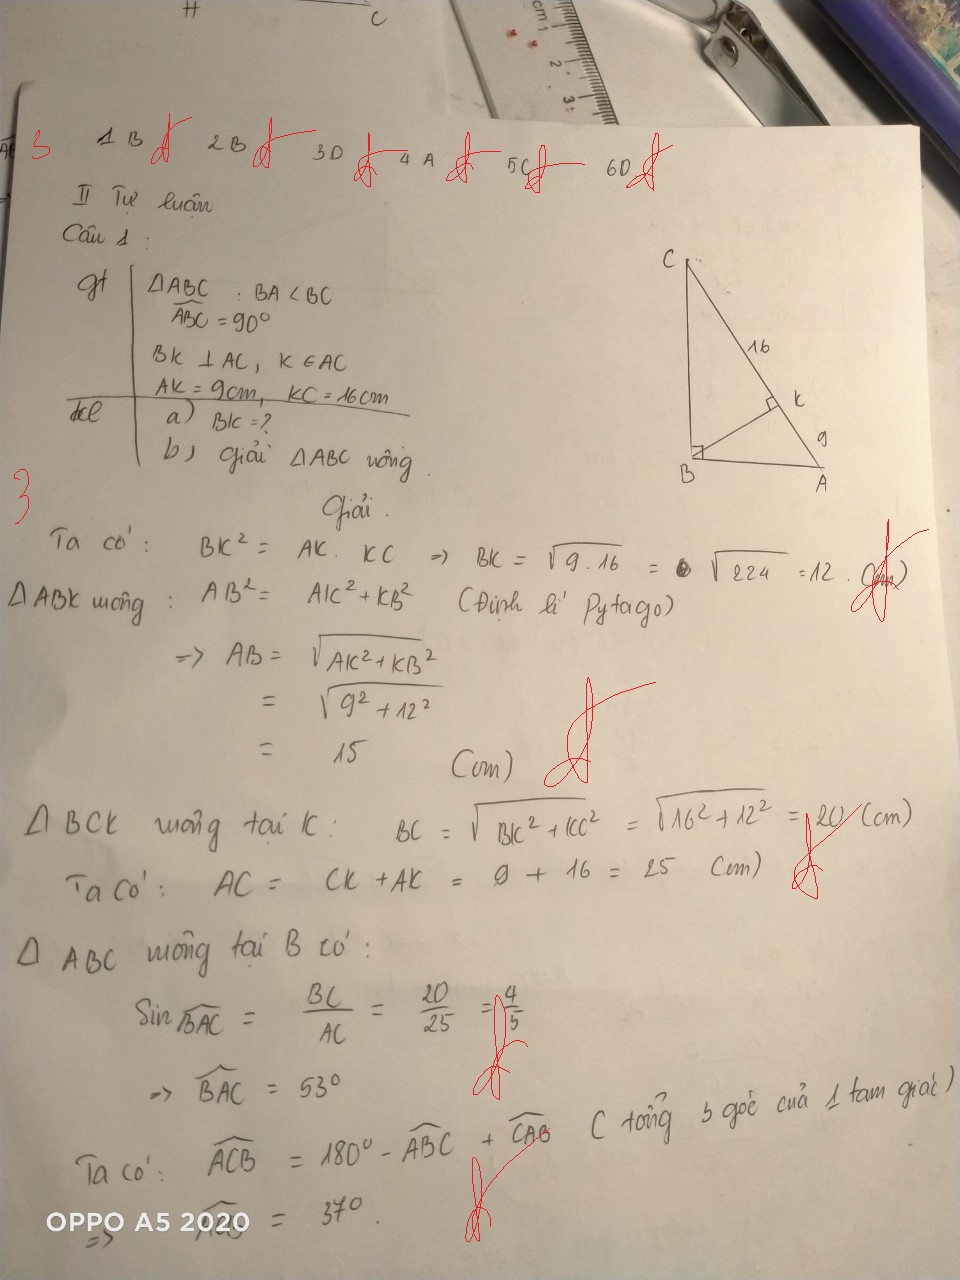 H
C
cm 1
2
3
3 1 B 2 B 3 D 4 A 5C 6D
II Tự luận
Câu 1 :
gt ΔABC : BA < BC
ABC = 90°
BK ⊥ AC, K ∈ AC
AK = 9cm, KC = 16cm
kl a) BK = ?
b) giải ΔABC vuông.
C
16
K
9
B
A
3
Giải.
Ta có : BK² = AK . KC => BK = √9.16 = √224 = 12. (cm)
ΔABK vuông : AB² = AK² + KB² (Định lí Pytago)
=> AB = √AK² + KB²
= √9² + 12²
= 15 (cm)
Δ BCK vuông tại K : BC = √BK² + KC² = √16² + 12² = 20 (cm)
Ta có : AC = CK + AK = 9 + 16 = 25 (cm)
Δ ABC vuông tại B có :
Sin BAC = BC/AC = 20/25 = 4/5
=> BAC = 53°
Ta có : ACB = 180° - ABC + CAB ( tổng 3 góc của 1 tam giác)
=> = 37°.
OPPO A5 2020